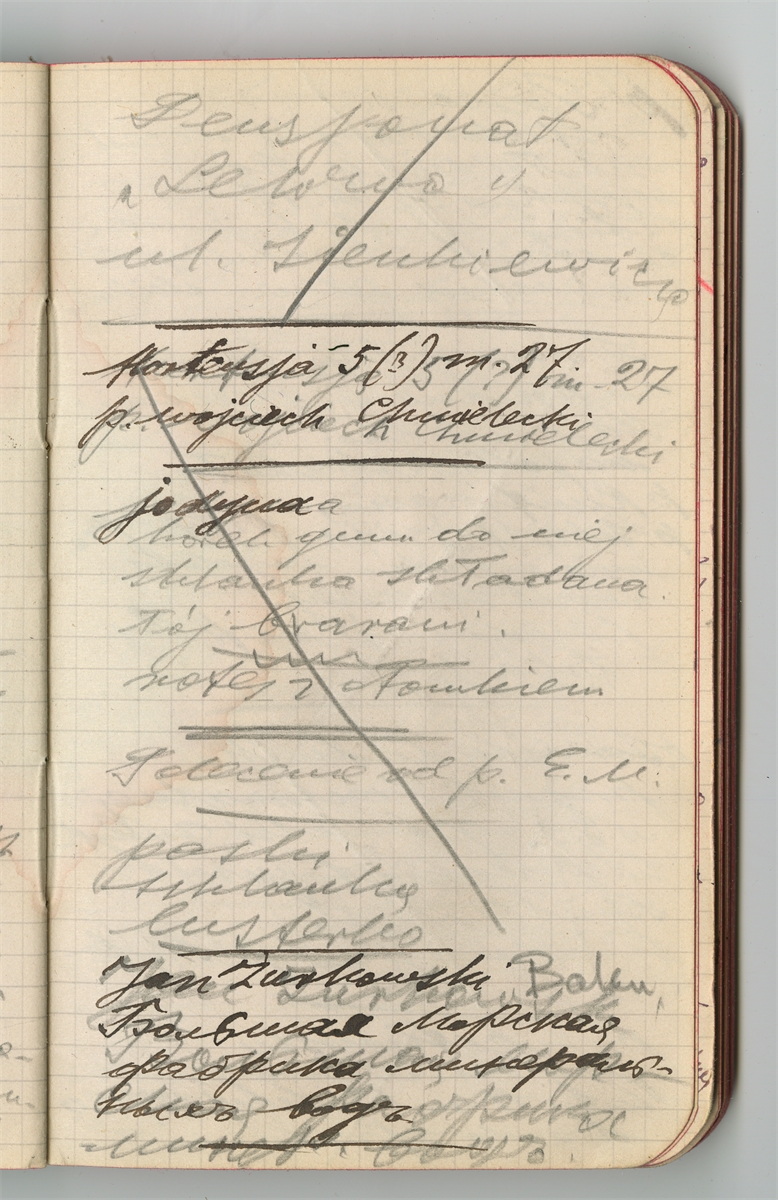 Pensjonat
„Letowo”
ul. Sienkiewicza
Hortensja 5 (3) m. 27
p. Wojciech Chmielecki
jodyna
korek gum. do niej
szklanka składana
Tój
notes z
Polecenie od p. E. M.
paski
szklankę
lusterko
Jan Żurkowski Baku,
Большая Морская
фабрика минераль-
ныхъ водъ